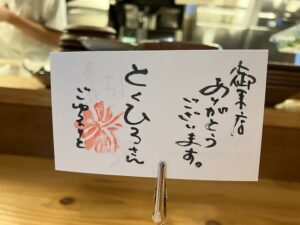 御来店
ありがとう
ございます。
とくひろさん
ごゆるりと